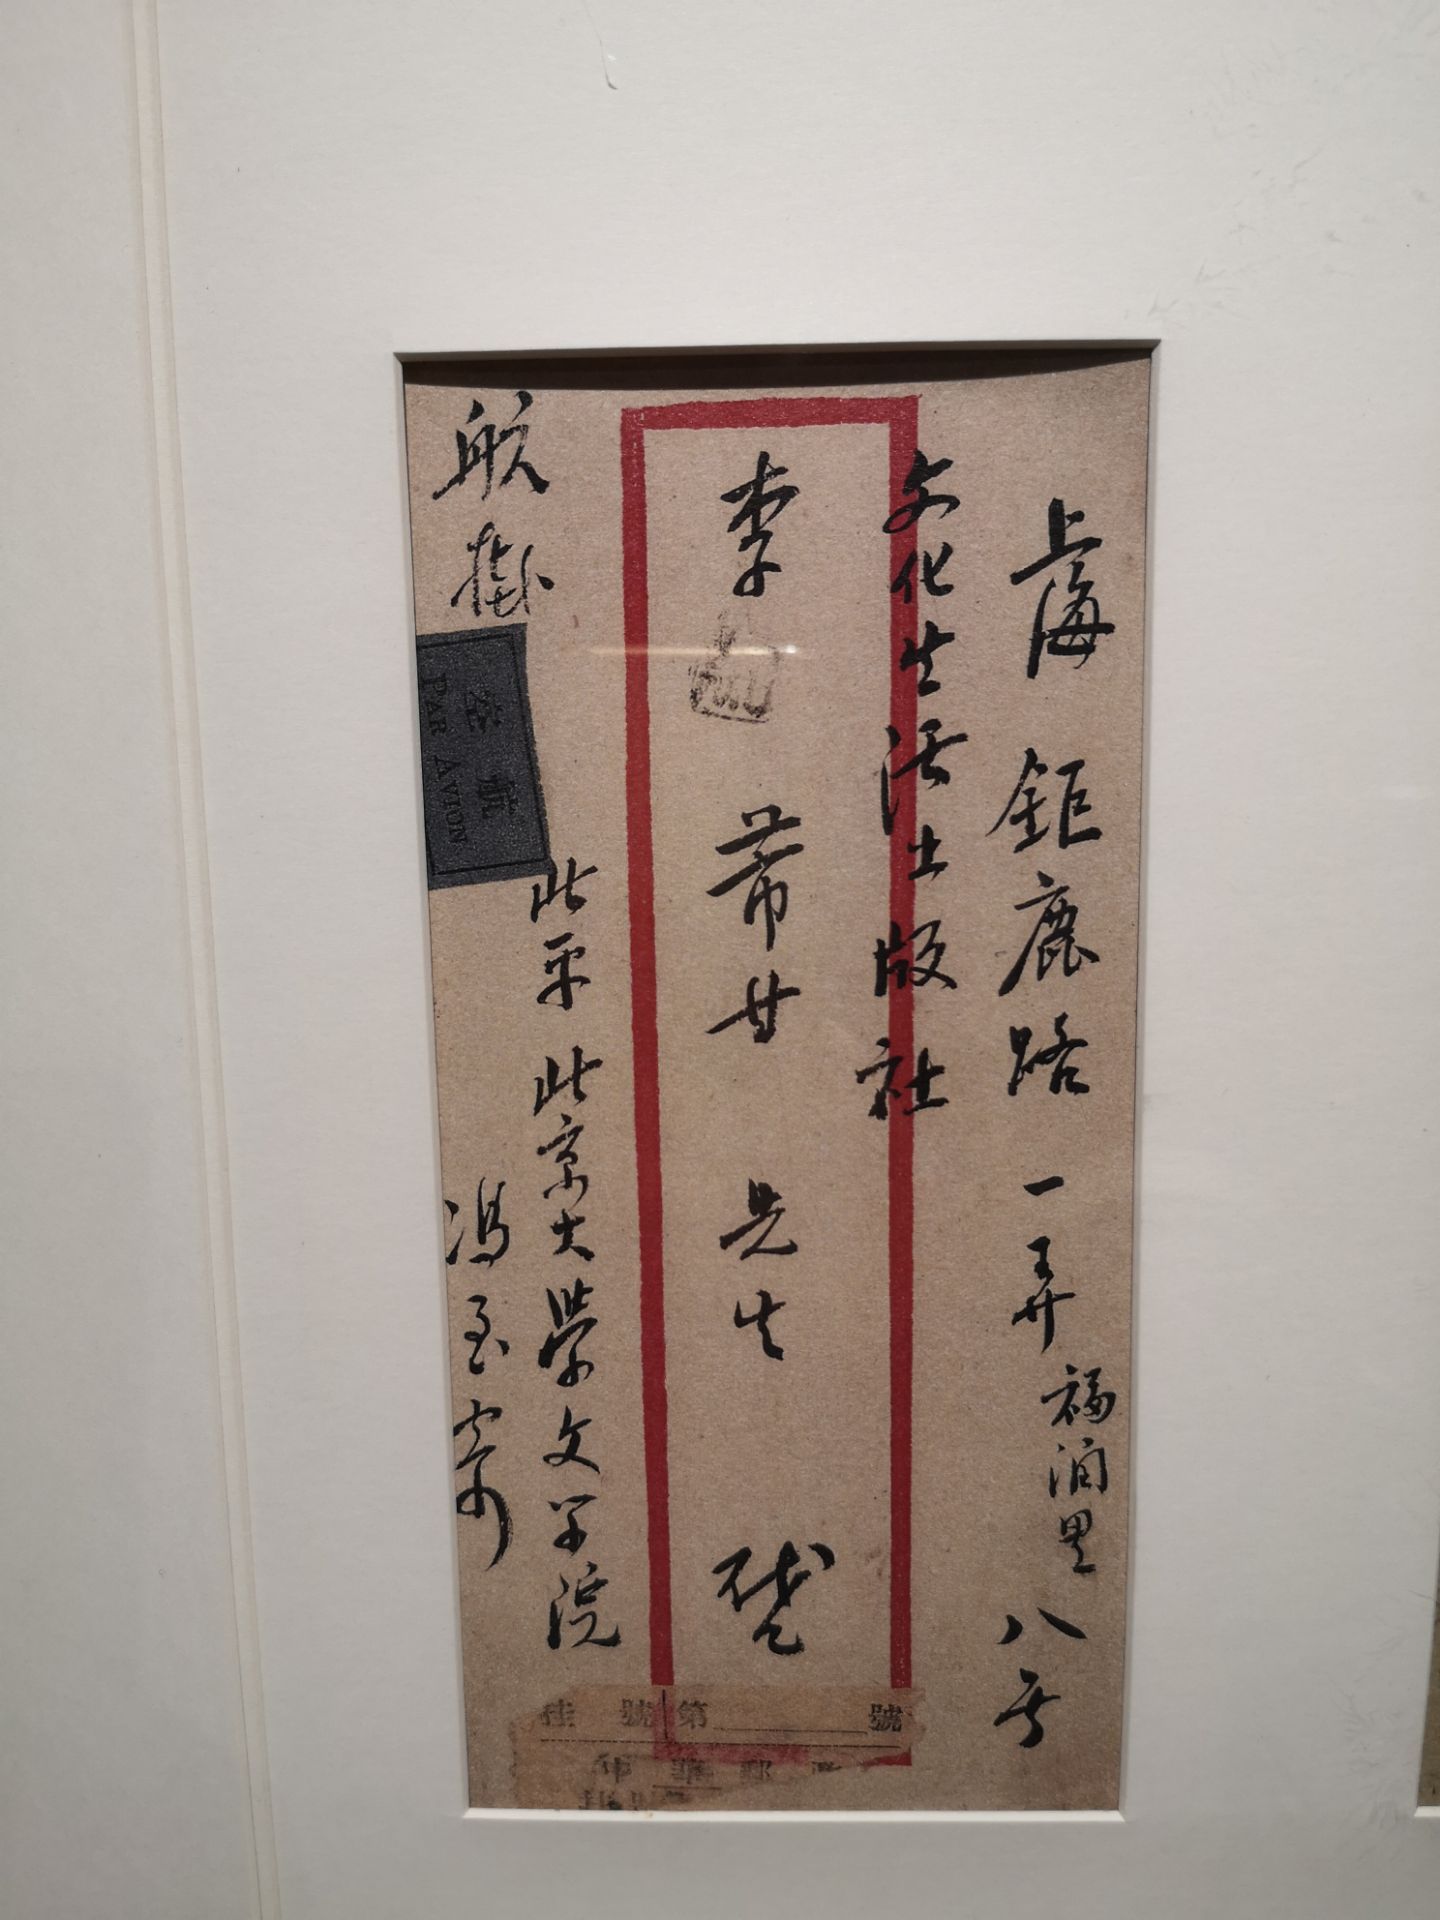 上海 鉅鹿路 一弄 福润里 八号
文化生活出版社
李 芾甘 先生
航掛
航空
PAR AVION
北平 北京大學文学院
冯至寄
挂號第
號
中華郵